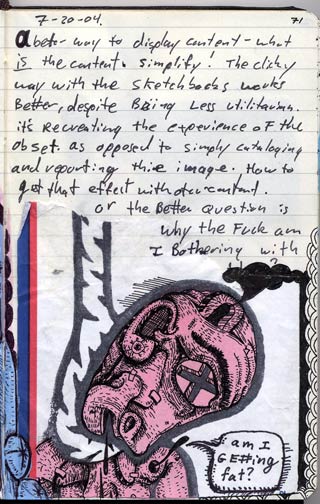 7-20-04.
71
a beter way to display content - what
is the content. Simplify! The clicky
way with the sketchbooks works
Better, despite Being Less utilitarian.
it's Recreating the experience of the
object. as opposed to simply cataloging
and reporting the image. How to
get that effect with other content.
or the Better Question is
why the Fuck am
I Bothering with
?
am I
GETting
fat?